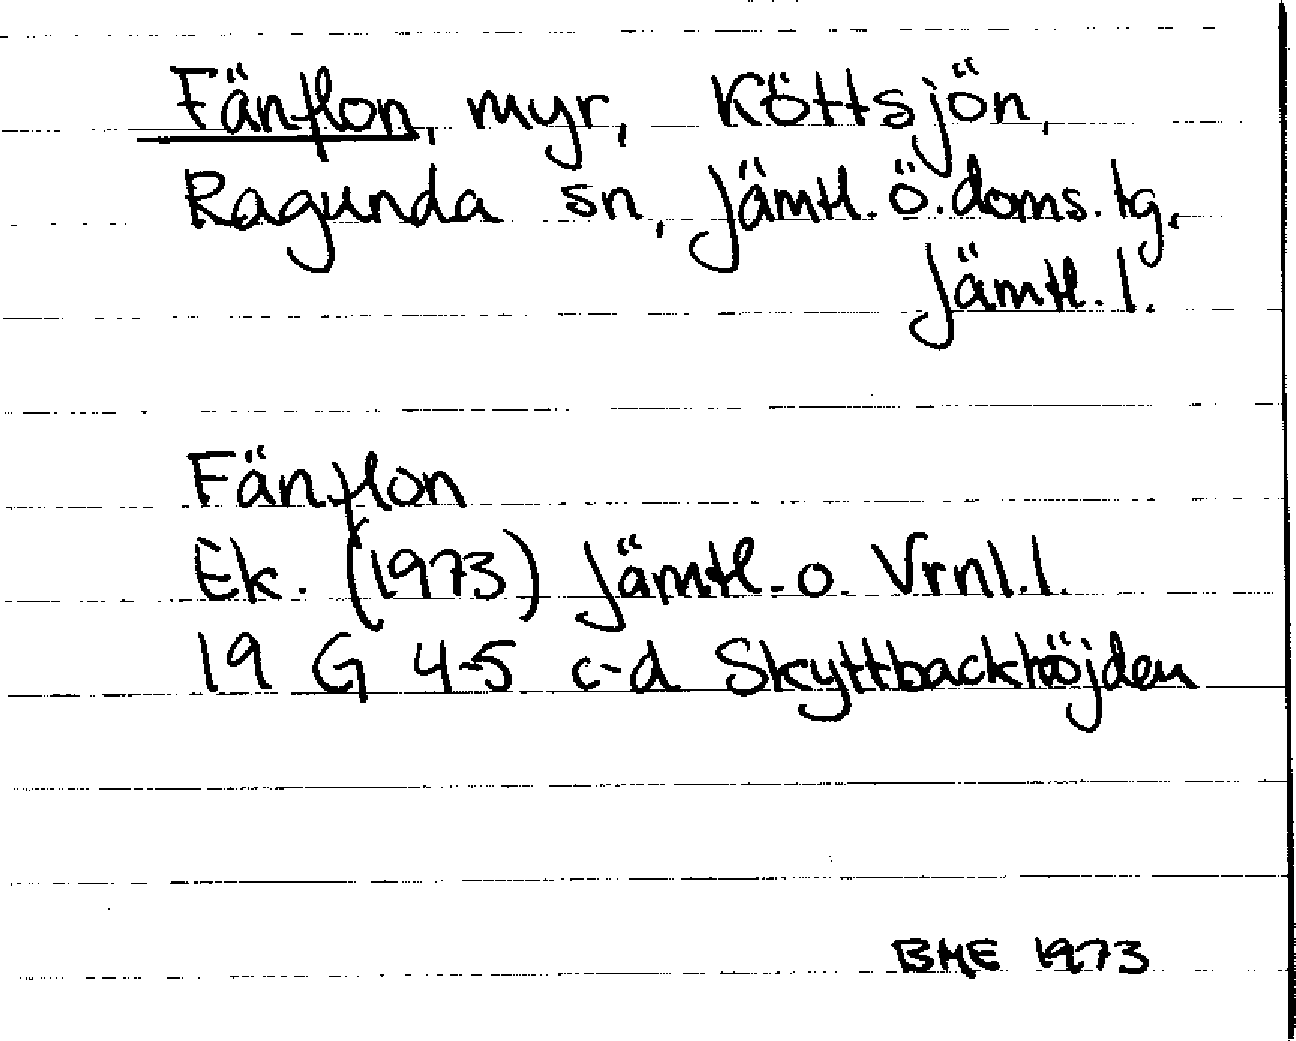 Fänflon, myr, Köttsjön,
Ragunda sn, Jämtl. ö. doms. tg,
Jämtl. l.
Fänflon
Ek. (1973) Jämtl. o. Vrnl. l.
19 G 4-5 c-d Skyttbackhöjden
BME 1973